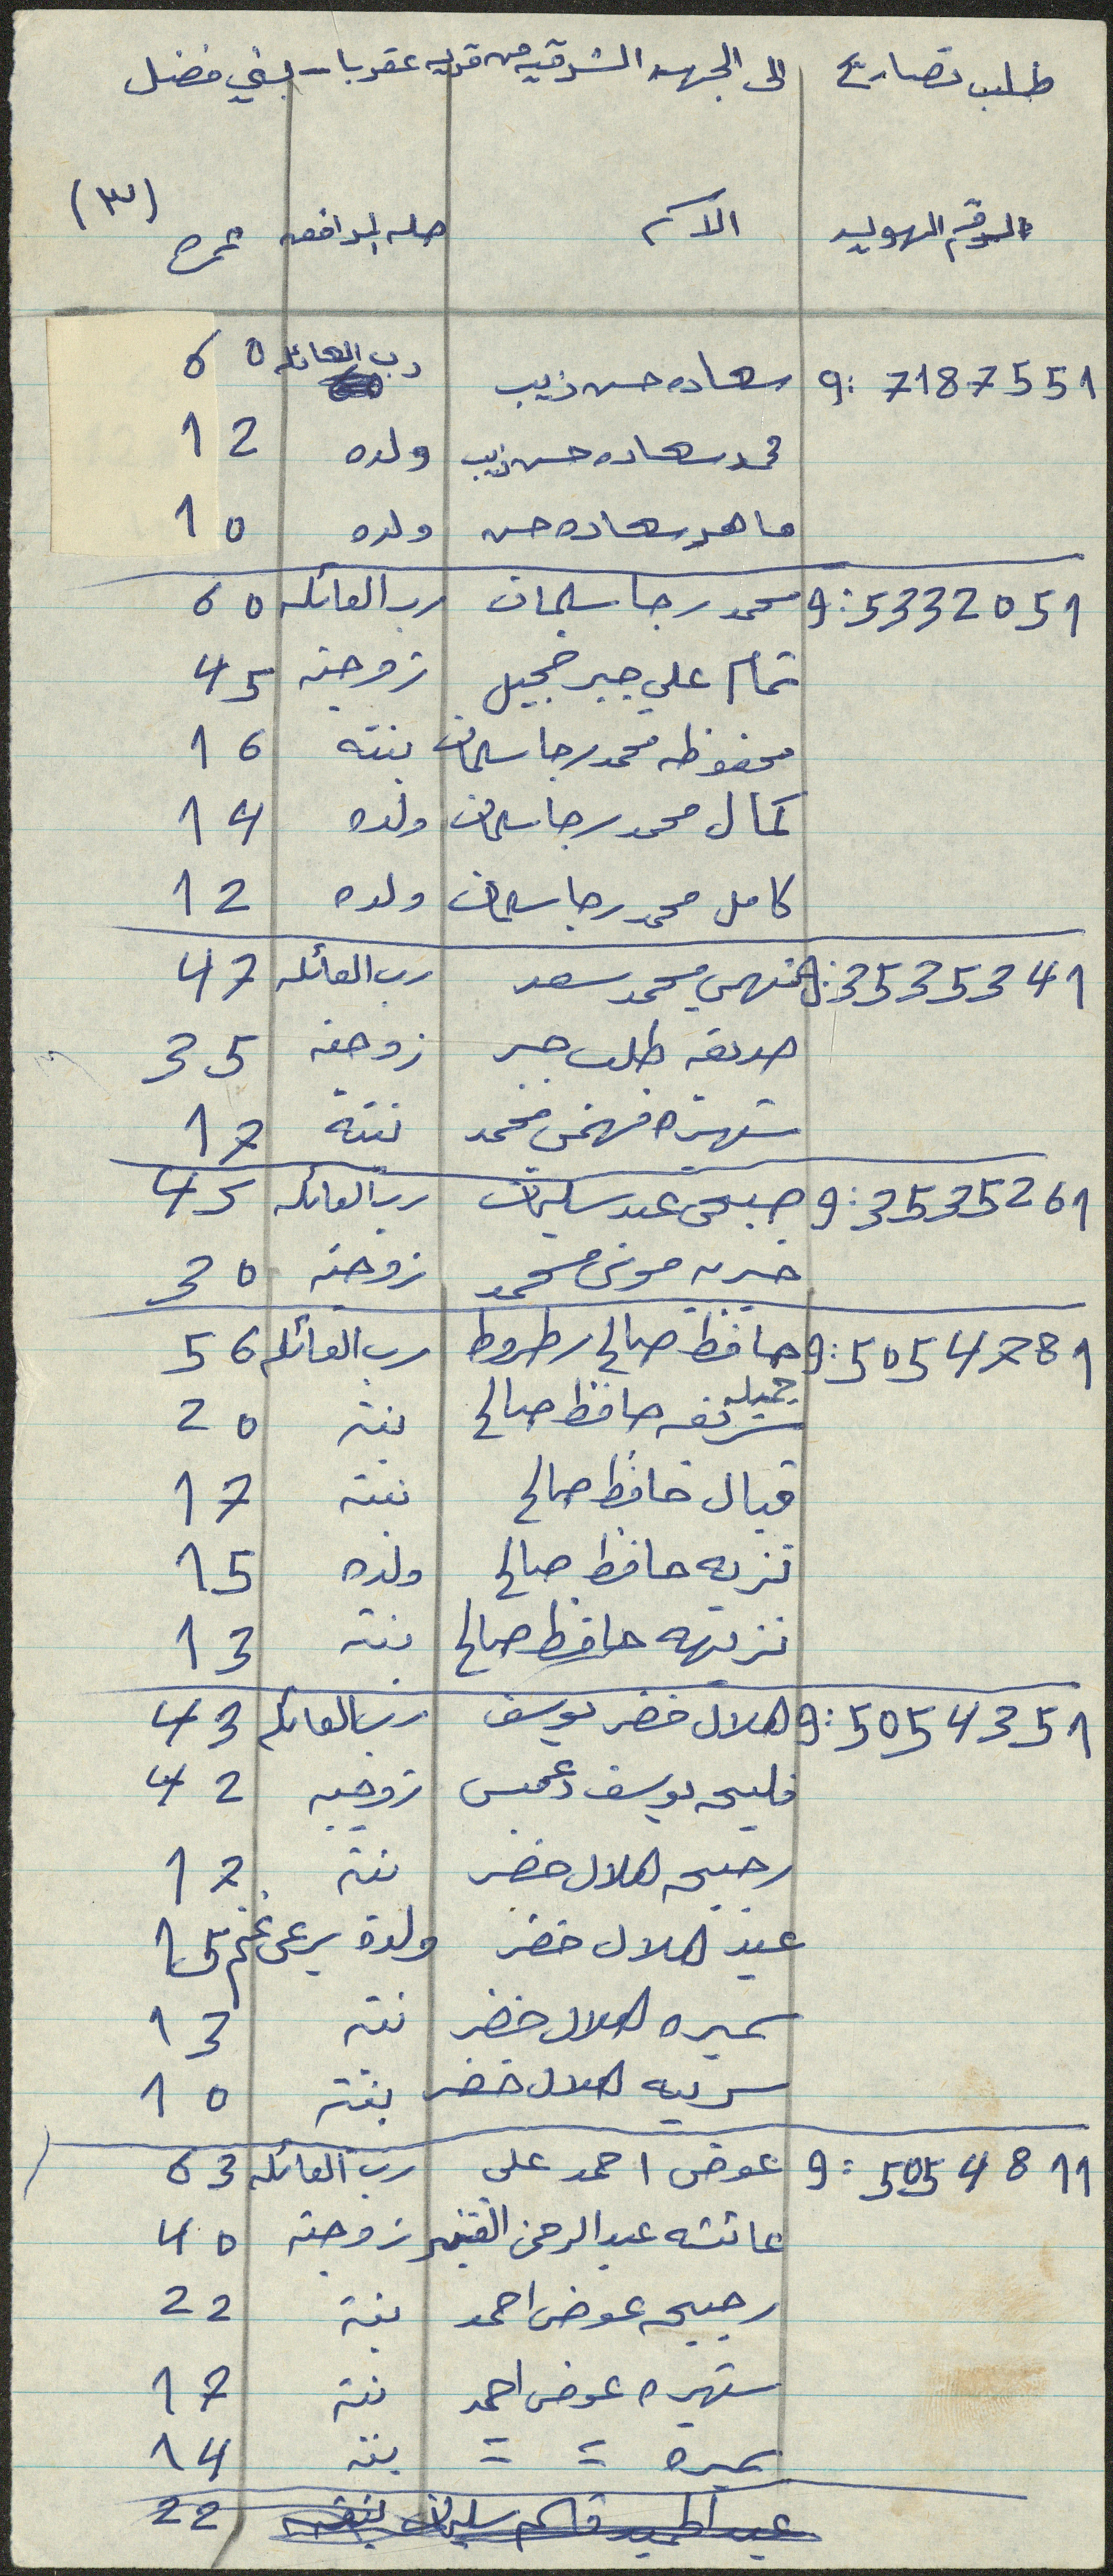 طلب تصاريح الى الجهه الشرقيه من قريه عقربا - بني فضل
(٣)
الرقم الهويه الاسم صله المرافقه عمره
9: 7187551 سعاده حسن ذيب رب العائله 60
محمد سعاده حسن ذيب ولده 12
ماهر سعاده حسن ولده 10
9: 5332051 محمد رجا سليمان رب العائله 60
تمام علي جبر زوجته 45
محفوظه محمد رجا سليمان بنته 16
كمال محمد رجا سليمان ولده 14
كامل محمد رجا سليمان ولده 12
9: 3535341 فهمي محمد سعد رب العائله 47
صديقه طلب جبر زوجته 35
شهيره فهمي محمد بنته 17
9: 3535261 صبحي عبد سليمان رب العائله 45
خيريه موسى محمد زوجته 30
9: 5054781 حافظ صالح رطروط رب العائله 56
جميله حافظ صالح بنته 20
قبال حافظ صالح بنته 17
نزيه حافظ صالح ولده 15
نزيهه حافظ صالح بنته 13
9: 5054351 هلال خضر يوسف رب العائله 43
فليحه يوسف دعميس زوجته 42
ربيحه هلال خضر بنته 17
عيد هلال خضر ولده يرعى غنم 15
سميره هلال خضر بنته 13
سريه هلال خضر بنته 10
9: 5054811 عوض احمد علي رب العائله 63
عائشه عبد الرحمن زوجته 40
ربيحه عوض احمد بنته 22
شهيره عوض احمد بنته 17
سميره = = بنته 14
عبد الحميد قاسم سليمان 22